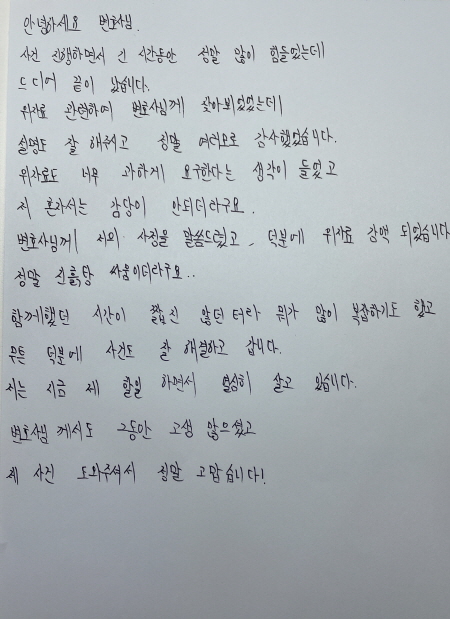 안녕하세요 변호사님.
사건 진행하면서 긴 시간동안 정말 많이 힘들었는데
드디어 끝이 났습니다.
위자료 관련하여 변호사님께 찾아뵈었었는데
설명도 잘 해주시고 정말 여러모로 감사했었습니다.
위자료도 너무 과하게 요구한다는 생각이 들었고
저 혼자서는 감당이 안되더라구요.
변호사님께 저의 사정을 말씀드렸고, 덕분에 위자료 감액 되었습니다
정말 진흙탕 싸움이더라구요..
함께했던 시간이 짧진 않던 터라 뭐가 많이 복잡하기도 했고
무튼 덕분에 사건도 잘 해결하고 갑니다.
저는 지금 제 할일 하면서 열심히 살고 있습니다.
변호사님 께서도 그동안 고생 많으셨고
제 사건 도와주셔서 정말 고맙습니다!